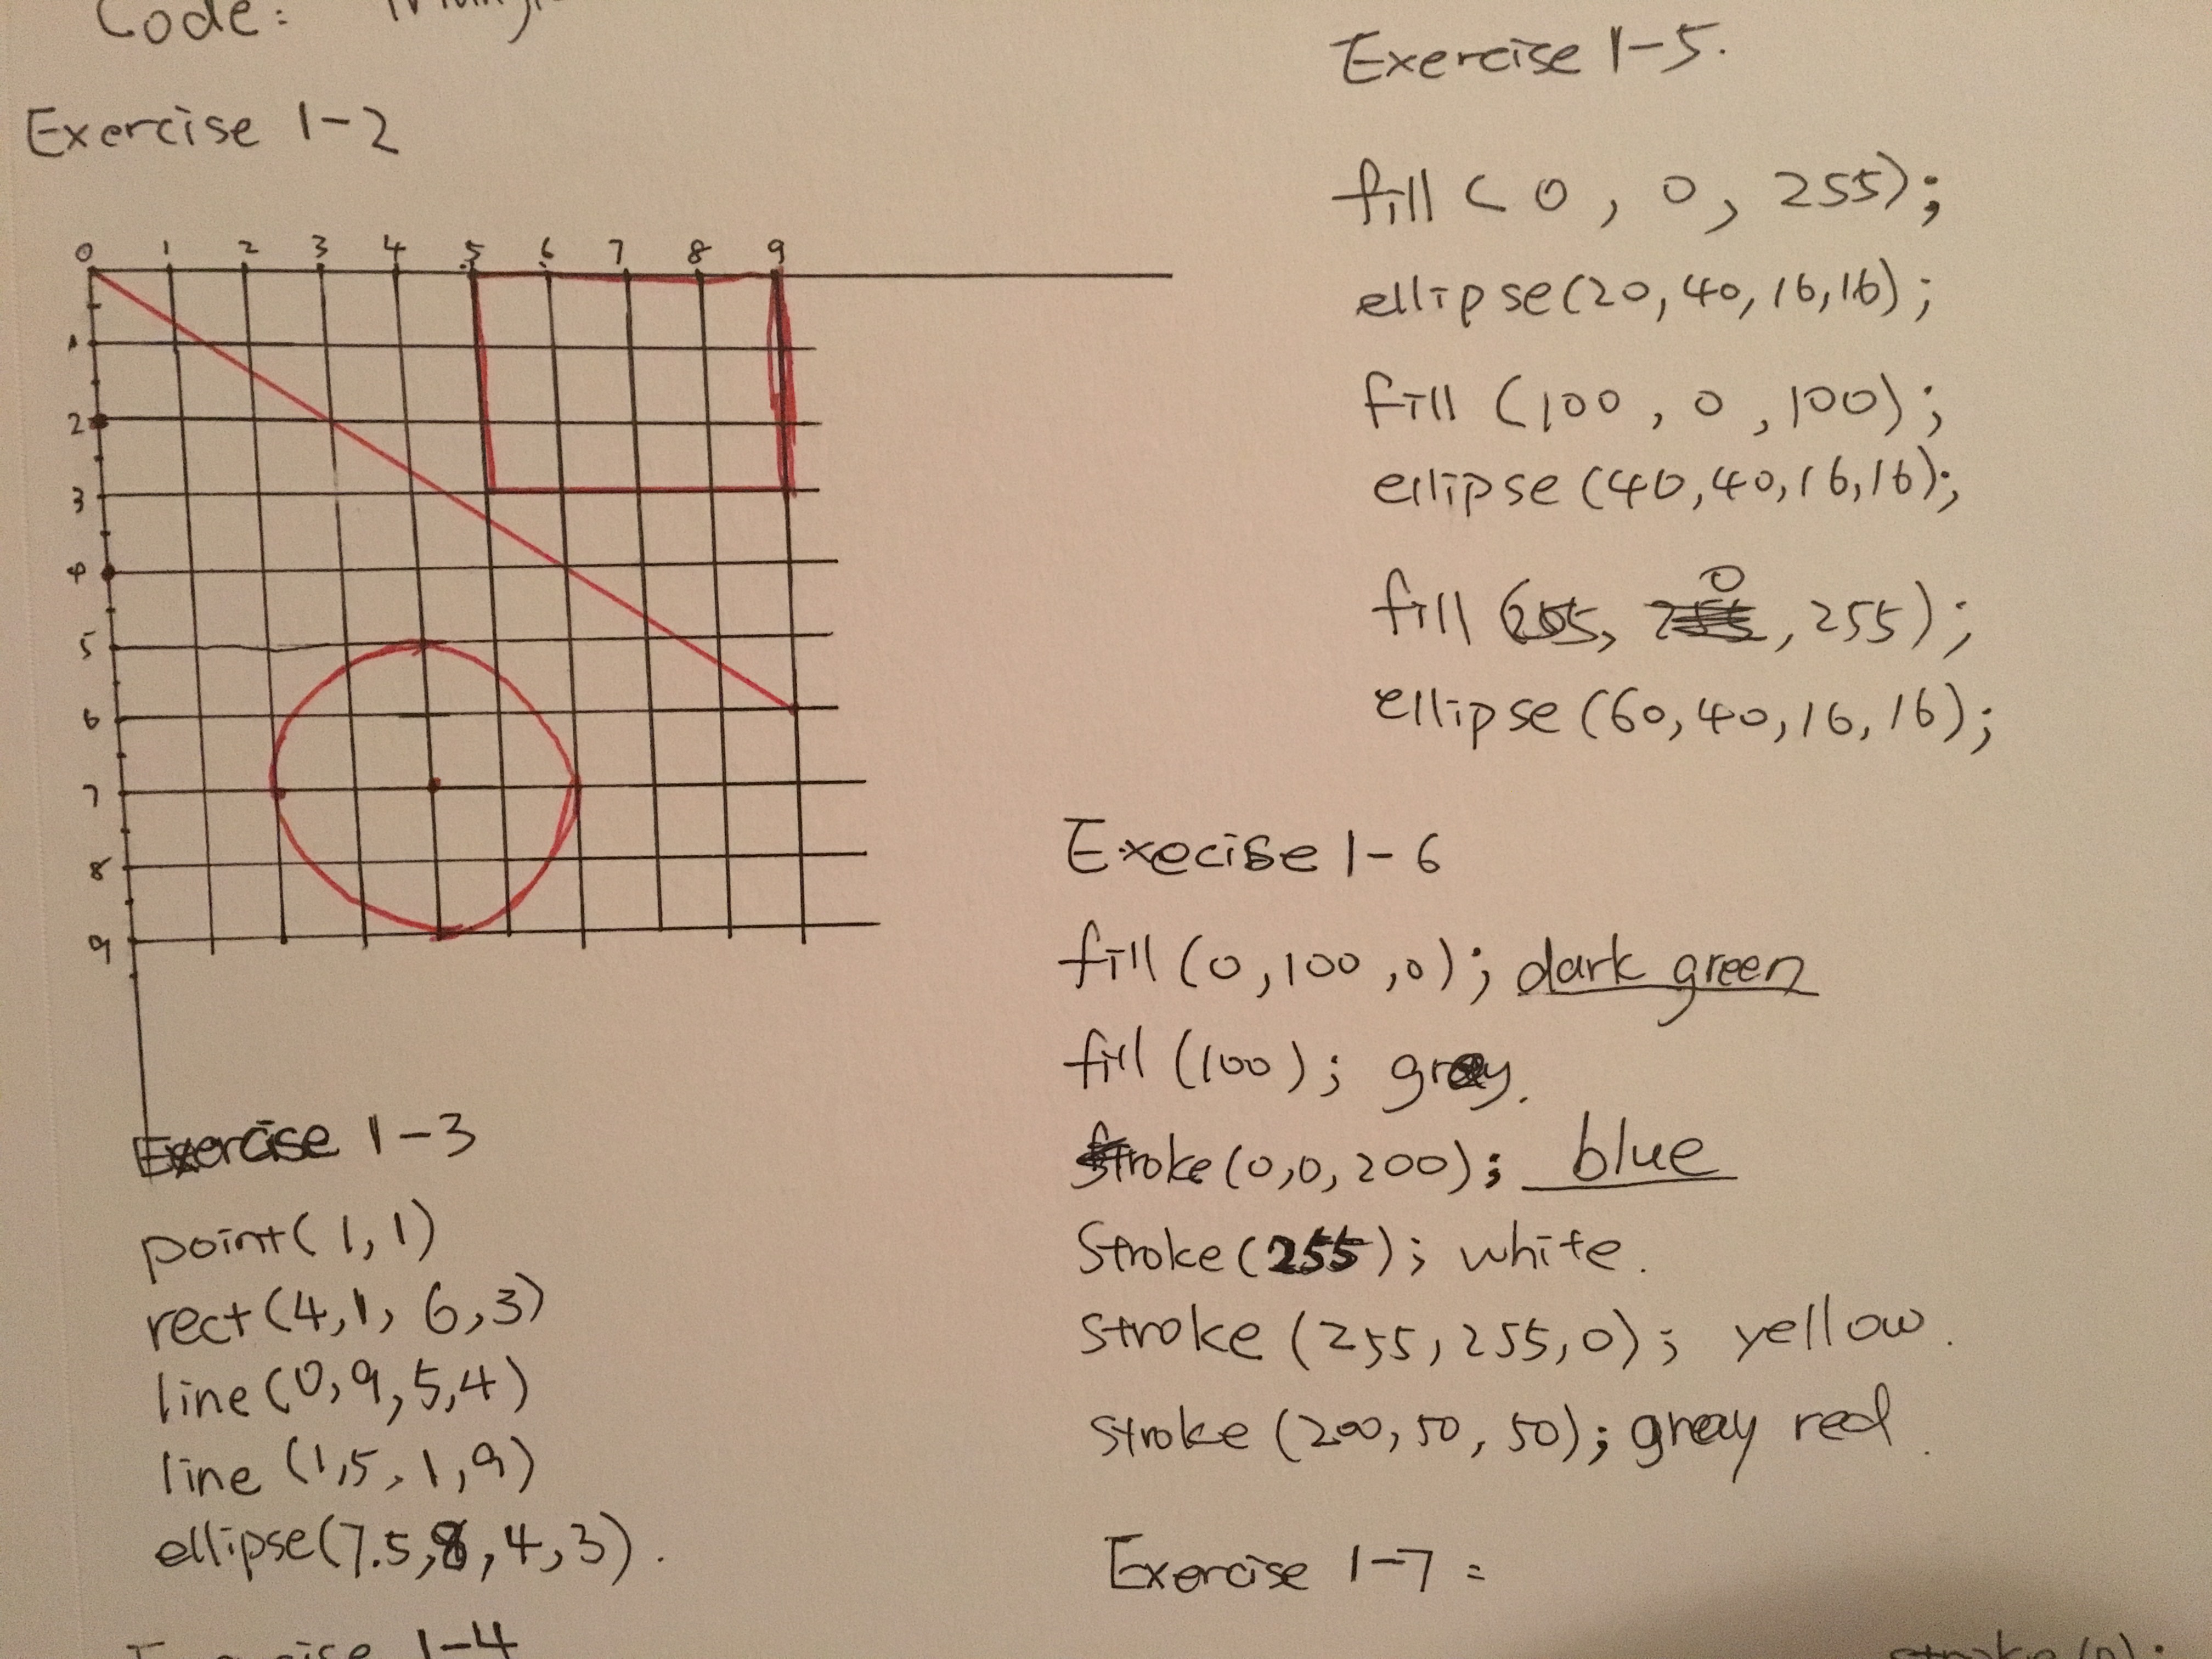 Code:
Exercise 1-2
0 1 2 3 4 5 6 7 8 9
1
2
3
4
5
6
7
8
9
Exercise 1-3
point(1,1)
rect(4,1, 6,3)
line(0,9,5,4)
line (1,5,1,9)
ellipse(7.5,8,4,3).
1-4
Exercise 1-5.
fill(0, 0, 255);
ellipse(20,40,16,16);
fill (100, 0, 100);
ellipse(40,40,16,16);
fill ( , 0, 255);
ellipse(60,40,16,16);
Execise 1-6
fill (0,100,0); dark green
fill (100); gray.
stroke(0,0,200); blue
Stroke(255); white.
stroke (255,255,0); yellow.
stroke (200,50,50); gray red.
Exercise 1-7 =
stroke(0);